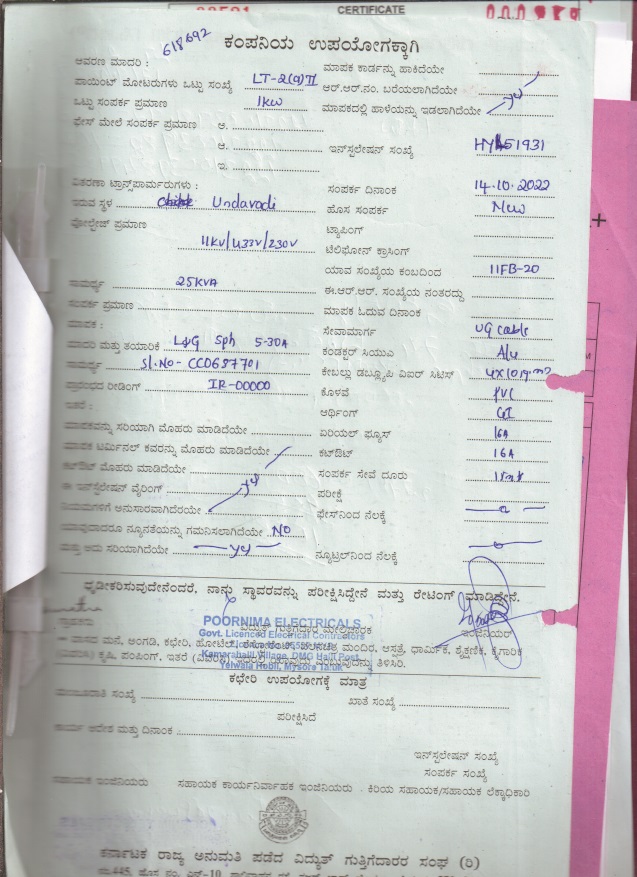 CERTIFICATE
618692
ಕಂಪನಿಯ ಉಪಯೋಗಕ್ಕಾಗಿ
ಆವರಣ ಮಾದರಿ :
ಮಾಪಕ ಕಾರ್ಡನ್ನು ಹಾಕಿದೆಯೇ
ಪಾಯಿಂಟ್ ಮೋಟರುಗಳು ಒಟ್ಟು ಸಂಖ್ಯೆ LT-2(a)II ಆರ್.ಆರ್.ನಂ. ಬರೆಯಲಾಗಿದೆಯೇ
ಒಟ್ಟು ಸಂಪರ್ಕ ಪ್ರಮಾಣ 1KW ಮಾಪಕದಲ್ಲಿ ಹಾಳೆಯನ್ನು ಇಡಲಾಗಿದೆಯೇ
ಫೇಸ್ ಮೇಲೆ ಸಂಪರ್ಕ ಪ್ರಮಾಣ ಅ.
ಆ. ಇನ್‌ಸ್ಟಲೇಷನ್ ಸಂಖ್ಯೆ HY151931
ಇ.
ವಿತರಣಾ ಟ್ರಾನ್ಸ್‌ಫಾರ್ಮರುಗಳು : ಸಂಪರ್ಕ ದಿನಾಂಕ 14.10.2022
ಇರುವ ಸ್ಥಳ Undavadi ಹೊಸ ಸಂಪರ್ಕ New
ವೋಲ್ಟೇಜ್ ಪ್ರಮಾಣ ಟ್ಯಾಪಿಂಗ್
11KV/433V/230V ಟೆಲಿಫೋನ್ ಕ್ರಾಸಿಂಗ್
ಯಾವ ಸಂಖ್ಯೆಯ ಕಂಬದಿಂದ 11FB-20
ಸಾಮರ್ಥ್ಯ 25KVA ಈ.ಆರ್.ಆರ್. ಸಂಖ್ಯೆಯ ನಂತರದ್ದು
ಸಂಪರ್ಕ ಪ್ರಮಾಣ ಮಾಪಕ ಓದುವ ದಿನಾಂಕ
ಮಾಪಕ : ಸೇವಾಮಾರ್ಗ UG cable
ಮಾದರಿ ಮತ್ತು ತಯಾರಿಕೆ L&G Sph 5-30A ಕಂಡಕ್ಟರ್ ಸಿಯುಎ Alu
ಸಾಮರ್ಥ್ಯ Sl.No- CC0687701 ಕೇಬಲ್ಲು ಡಬ್ಲ್ಯೂಪಿ ವಿಐರ್ ಸಿಟಿಸ್
ಪ್ರಾರಂಭದ ರೀಡಿಂಗ್ IR-00000 ಕೊಳವೆ PVC
ಇತರೆ : ಆರ್ಥಿಂಗ್ GI
ಮಾಪಕವನ್ನು ಸರಿಯಾಗಿ ಮೊಹರು ಮಾಡಿದೆಯೇ ಏರಿಯಲ್ ಫ್ಯೂಸ್ 16A
ಮಾಪಕ ಟರ್ಮಿನಲ್ ಕವರನ್ನು ಮೊಹರು ಮಾಡಿದೆಯೇ ಕಟ್‌ಔಟ್ 16A
ಕಟ್‌ಔಟ್ ಮೊಹರು ಮಾಡಿದೆಯೇ ಸಂಪರ್ಕ ಸೇವೆ ದೂರು
ಈ ಇನ್‌ಸ್ಟಲೇಷನ್ ವೈರಿಂಗ್ ಪರೀಕ್ಷೆ
ನಿಯಮಗಳಿಗೆ ಅನುಸಾರವಾಗಿದೆರಯೇ ಫೇಸ್‌ನಿಂದ ನೆಲಕ್ಕೆ
ಯಾವುದಾದರೂ ನ್ಯೂನತೆಯನ್ನು ಗಮನಿಸಲಾಗಿದೆಯೇ NO
ಮತ್ತು ಅದು ಸರಿಯಾಗಿದೆಯೇ ನ್ಯೂಟ್ರಲ್‌ನಿಂದ ನೆಲಕ್ಕೆ
ಧೃಡೀಕರಿಸುವುದೇನೆಂದರೆ, ನಾನು ಸ್ಥಾವರವನ್ನು ಪರೀಕ್ಷಿಸಿದ್ದೇನೆ ಮತ್ತು ರೇಟಿಂಗ್ ಮಾಡಿದ್ದೇನೆ.
POORNIMA ELECTRICALS
Govt. Licenced Electrical Contractors
Kamarahalli Village, DMG Halli Post
Yelwala Hobli, Mysore Taluk
ಇಂಜಿನಿಯರ್
ಮನೆ, ಅಂಗಡಿ, ಕಛೇರಿ, ಹೋಟೆಲ್, ಮಂದಿರ, ಆಸ್ಪತ್ರೆ, ಧಾರ್ಮಿಕ, ಶೈಕ್ಷಣಿಕ, ಕೈಗಾರಿಕೆ
ಕೃಷಿ, ಪಂಪಿಂಗ್, ಇತರೆ ತಿಳಿಸಿರಿ.
ಕಛೇರಿ ಉಪಯೋಗಕ್ಕೆ ಮಾತ್ರ
ಮಂಜೂರಾತಿ ಸಂಖ್ಯೆ ಖಾತೆ ಸಂಖ್ಯೆ
ಪರೀಕ್ಷಿಸಿದೆ
ಕಾರ್ಯ ಆದೇಶ ಮತ್ತು ದಿನಾಂಕ
ಇನ್‌ಸ್ಟಲೇಷನ್ ಸಂಖ್ಯೆ
ಸಂಪರ್ಕ ಸಂಖ್ಯೆ
ಸಹಾಯಕ ಇಂಜಿನಿಯರು ಸಹಾಯಕ ಕಾರ್ಯನಿರ್ವಾಹಕ ಇಂಜಿನಿಯರು - ಕಿರಿಯ ಸಹಾಯಕ/ಸಹಾಯಕ ಲೆಕ್ಕಾಧಿಕಾರಿ
ಕರ್ನಾಟಕ ರಾಜ್ಯ ಅನುಮತಿ ಪಡೆದ ವಿದ್ಯುತ್ ಗುತ್ತಿಗೆದಾರರ ಸಂಘ (ರಿ)